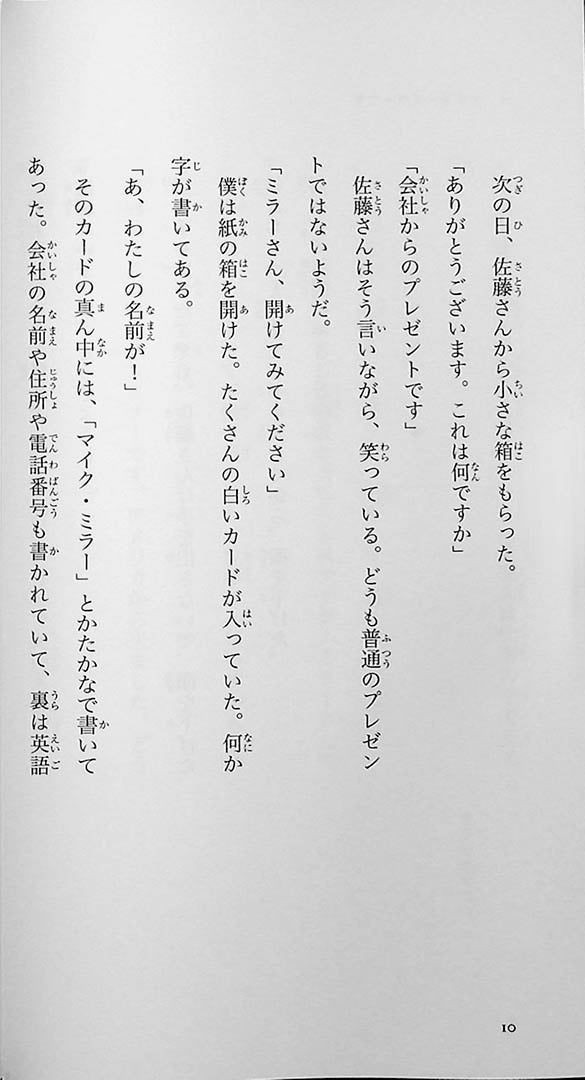 次の日、佐藤さんから小さな箱をもらった。
「ありがとうございます。これは何ですか」
「会社からのプレゼントです」
佐藤さんはそう言いながら、笑っている。どうも普通のプレゼン
トではないようだ。
「ミラーさん、開けてみてください」
僕は紙の箱を開けた。たくさんの白いカードが入っていた。何か
字が書いてある。
「あ、わたしの名前が！」
そのカードの真ん中には、「マイク・ミラー」とかたかなで書いて
あった。会社の名前や住所や電話番号も書かれていて、裏は英語
10